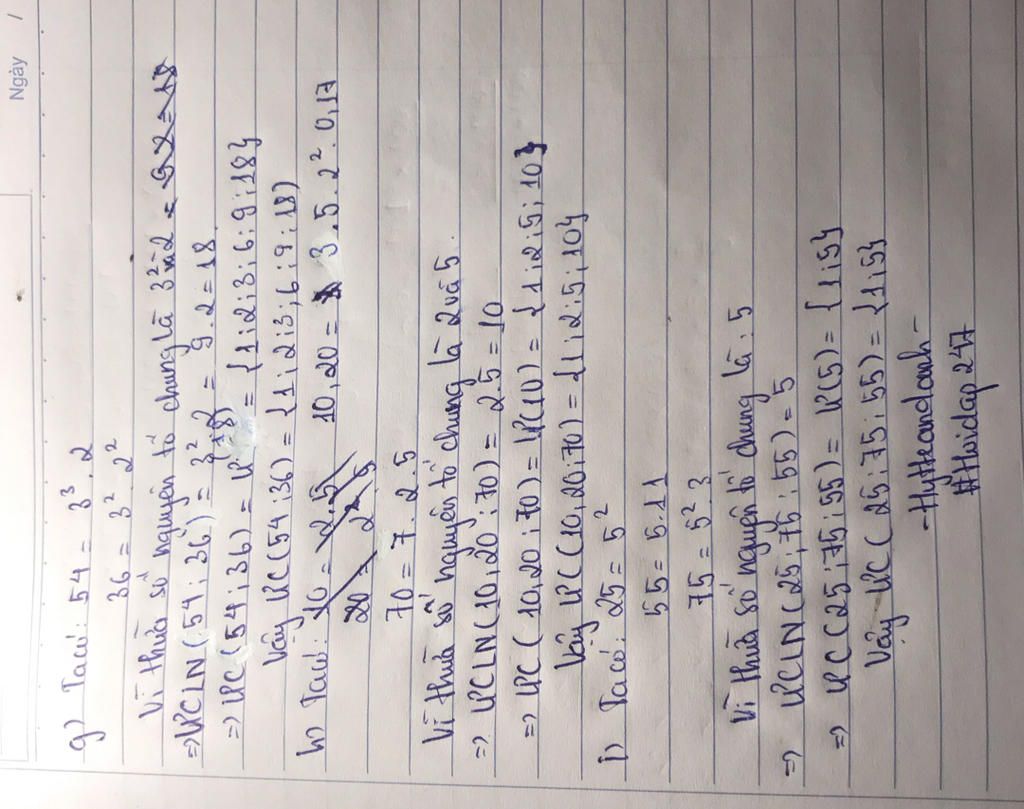 Ngày /
g) Ta có: 54 = 3³ . 2
36 = 3² . 2²
Vì thừa số nguyên tố chung là 3² và 2
=> ƯCLN (54 ; 36) = 3² . 2 = 9 . 2 = 18.
=> ƯC (54 ; 36) = Ư (18) = {1 ; 2 ; 3 ; 6 ; 9 ; 18}
Vậy ƯC (54 ; 36) = {1 ; 2 ; 3 ; 6 ; 9 ; 18)
h) Ta có: 10 = 2.5 10,20 = 3 . 5 . 2² . 0,17
20 = 2² . 5
70 = 7 . 2 . 5
Vì thừa số nguyên tố chung là 2 và 5.
=> ƯCLN (10,20 ; 70) = 2 . 5 = 10
=> ƯC (10,20 ; 70) = Ư (10) = {1 ; 2 ; 5 ; 10}
Vậy ƯC (10,20 ; 70) = {1 ; 2 ; 5 ; 10}
i) Ta có: 25 = 5²
55 = 5 . 11
75 = 5² . 3
Vì thừa số nguyên tố chung là : 5
=> ƯCLN (25 ; 75 ; 55) = 5
=> ƯC (25 ; 75 ; 55) = Ư (5) = {1 ; 5}
Vậy ƯC (25 ; 75 ; 55) = {1 ; 5}
#Hoidap247